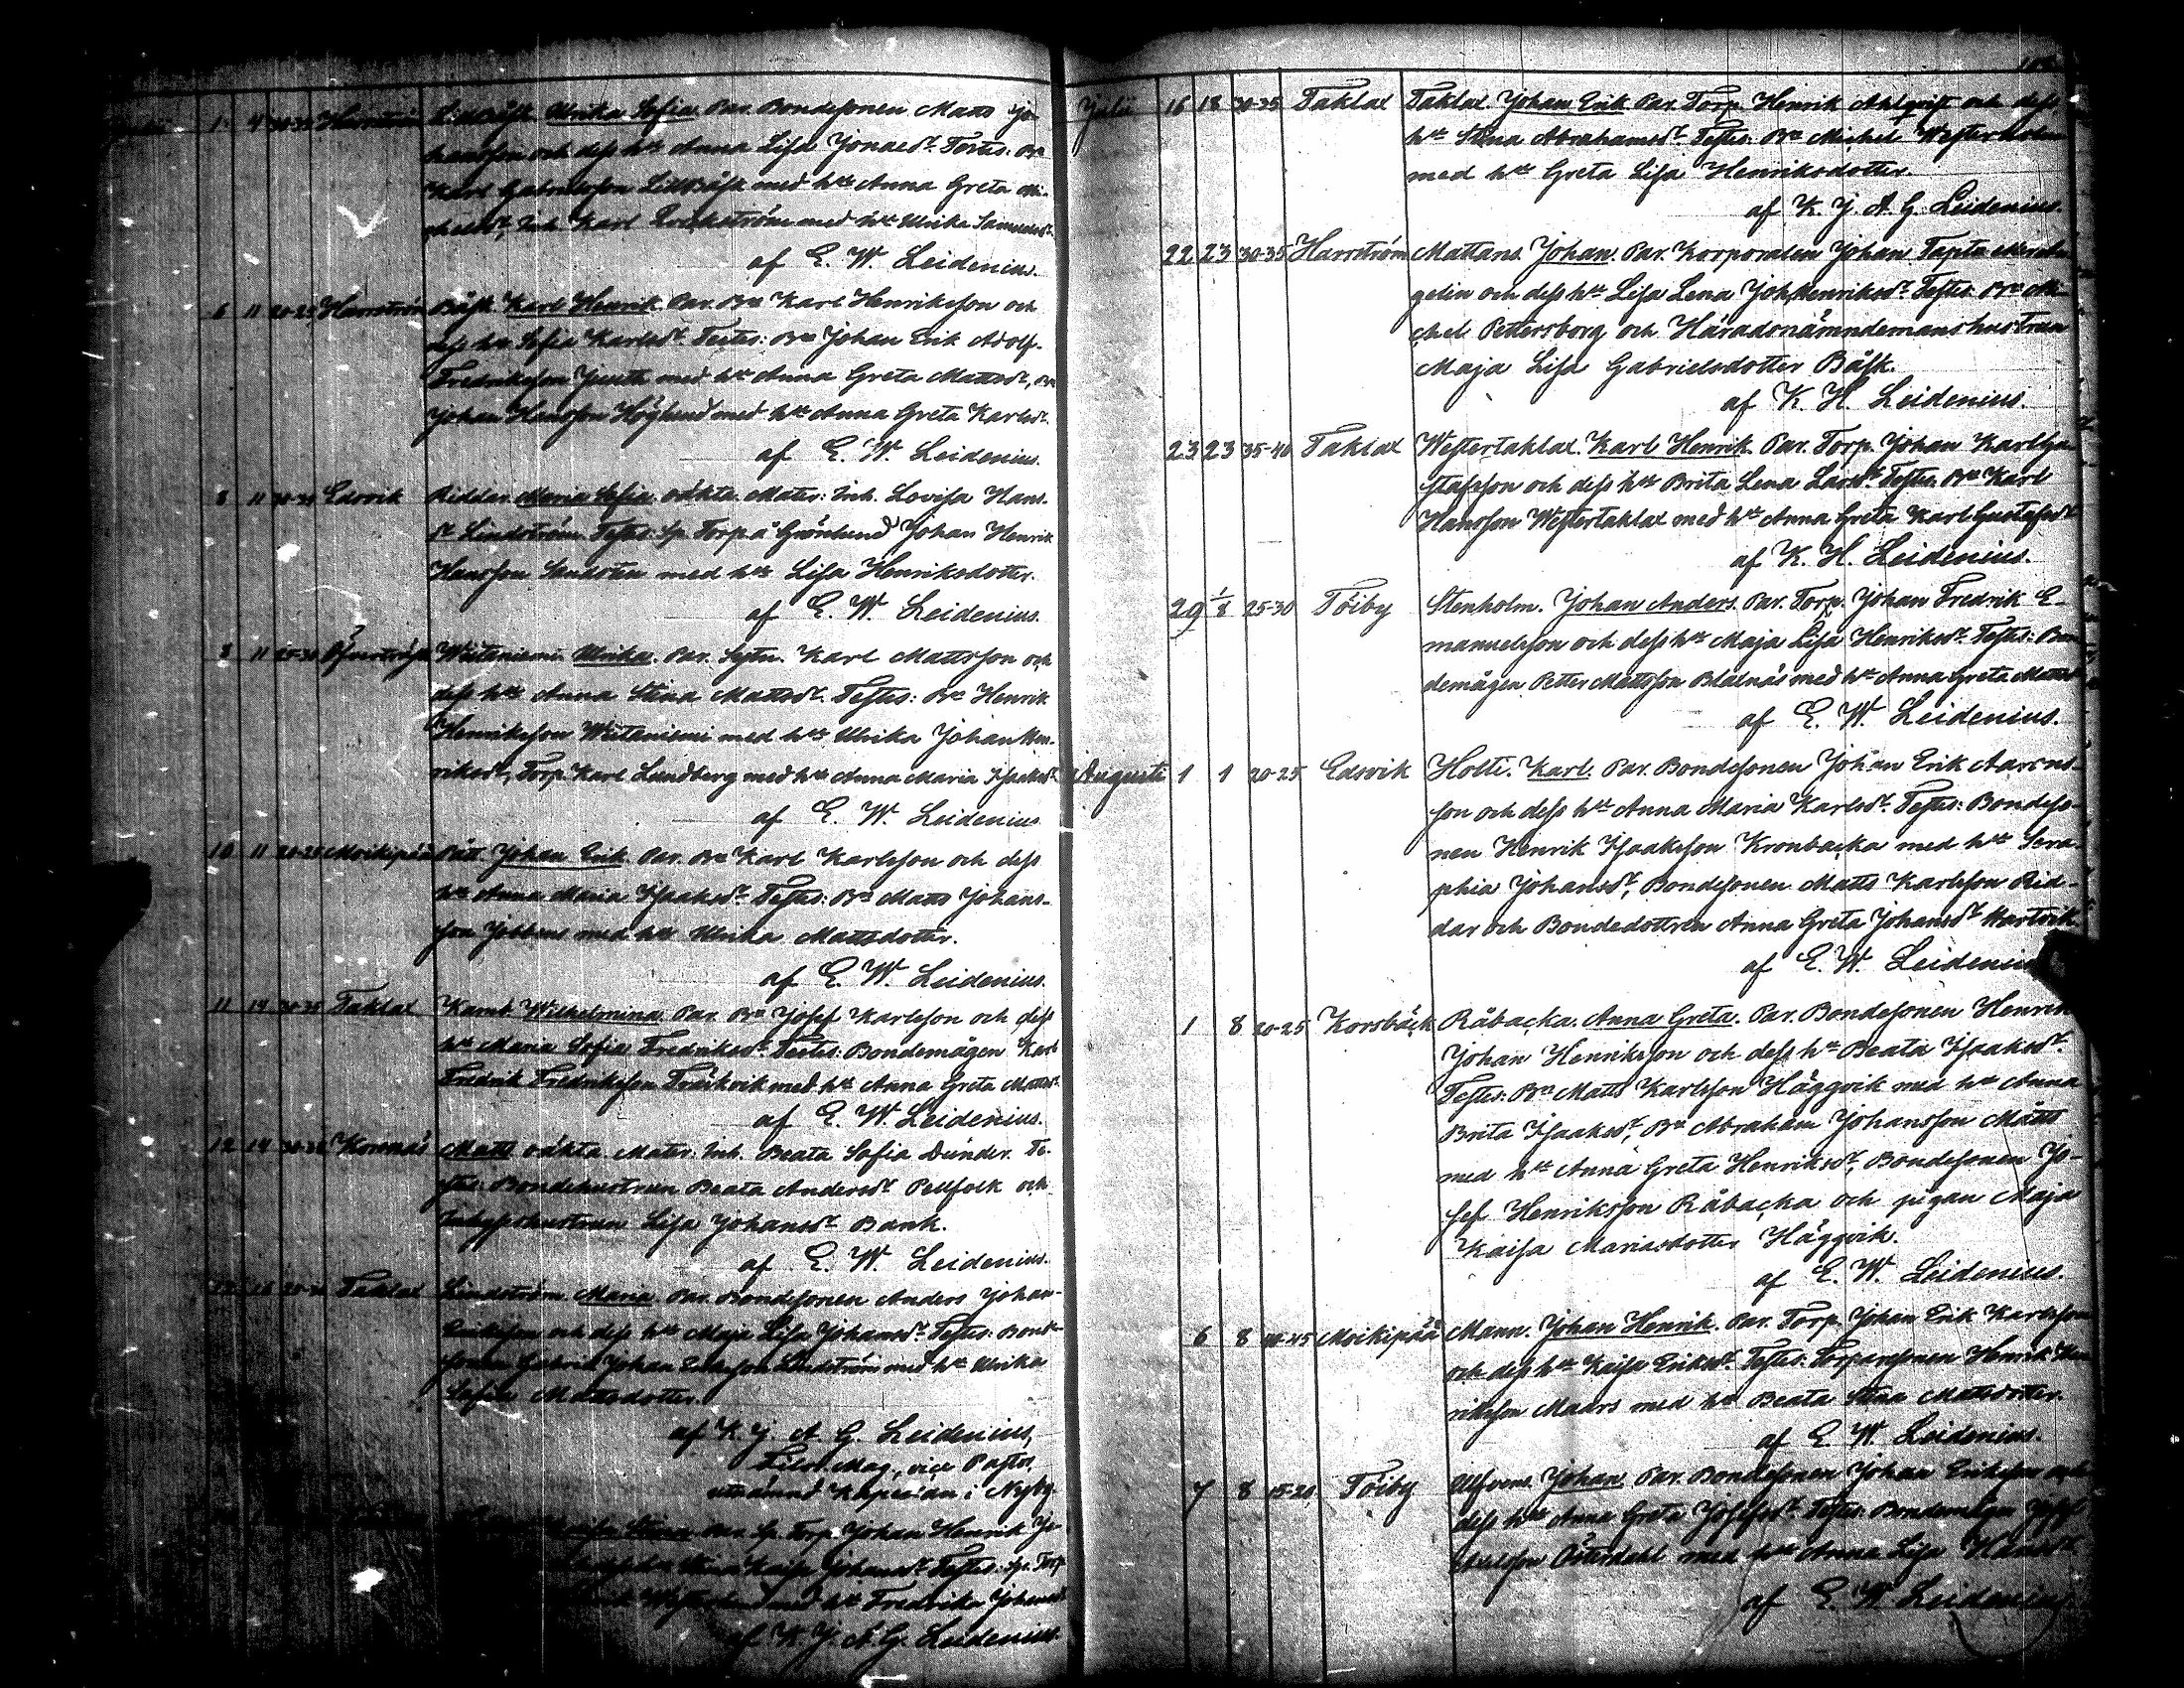 1 4 30-35 Harrström Lillbåsk Ulrika Sofia. Par. Bondesonen Matts Jo-
hansson och dess h:u Anna Lisa Jonasd:r Testes: B:n
Karl Gabrielsson Lillbåsk med h:u Anna Greta Mi-
chelsd:r, Inh. Karl med h:u Ulrika Samuelsd:r
af E. W. Leidenius.
6 11 20-25 Harrström Båsk. Karl Henrik. Par. B:n Karl Henriksson och
dess h:u Sofia Karlsd:r Testes: B:n Johan Erik Adolf
Fredriksson Juuth med h:u Anna Greta Mattsd:r, B:n
Johan Hansson Höglund med h:u Anna Greta Karlsd:r.
af E. W. Leidenius.
8 11 30-35 Edsvik Riddar. Maria Sofia. oäkta. Mater: Inh. Lovisa Hans-
d:r Lindström. Testes: Sp. Torp. å Grönlund Johan Henrik
Hansson Sandsten med h:u Lisa Henriksdotter.
af E. W. Leidenius.
8 11 25-30 Öfverträsk Weiteniemi. Ulrika. Par. Sytn. Karl Mattsson och
dess h:u Anna Stina Mattsd:r. Testes: B:n Henrik
Henriksson Weiteniemi med h:u Ulrika Johan Hen-
riksd:r, Torp. Karl Lundberg med h:u Anna Maria Isaaksd:r.
af E. W. Leidenius
10 11 20-25 Moikipää Pått. Johan Erik. Par. B:n Karl Karlsson och dess
h:u Anna Maria Isaaksd:r Testes: B:n Matts Johans-
son Jobbens med h:u Ulrika Mattsdotter.
af E. W. Leidenius.
11 14 30-35 Taklax Kamb. Wilhelmina. Par. B:n Josef Karlsson och dess
h:u Maria Sofia Fredriksd:r. Testes: Bondemågen Karl
Fredrik Fredriksson Träskvik med h:u Anna Greta Mattsd:r.
af E. W. Leidenius.
12 14 30-35 Korsnäs Matts oäkta. Mater. Inh. Beata Sofia Dunder. Te-
stes: Bondehustrun Beata Andersd:r Pellfolk och
Inhyseshustrun Lisa Johansd:r Bank.
af E. W. Leidenius.
Taklax Lindström. Maria. Par. Bondesonen Anders Johan-
Eriksson och dess h:u Maja Lisa Johansd:r Testes: Bonde-
sonen Gabriel Johan Eriksson Lindström med h:u Ulrika
Sofia Mattsdotter.
af K. J. A. G. Leidenius,
Filos. Mag., vice Pastor,
utnämnd Kapellan i Nyby.
Stina Par. Sp. Torp. Johan Henrik Jo-
Kaisa Johansd:r Testes: Sp. Torp.
med h:u Fredrika Johansd:r
af K. J. A. G. Leidenius.
Julii 16 18 30-35 Taklax Taklax. Johan Erik. Par. Torp. Henrik Ahlqvist och dess
h:u Stina Abrahamsd:r. Testes: B:n Michel Westerholm
med h:u Greta Lisa Henriksdotter.
af K. J. A. G. Leidenius.
22 23 30-35 Harrström Mattans. Johan. Par. Korporalen Johan Tapto
gelin och dess h:u Lisa Lena Joh. Henriksd:r Testes: B:n Mi-
chel Pettersborg och Häradsnämndemanshustrun
Maja Lisa Gabrielsdotter Båsk.
af K. H. Leidenius.
23 23 35-40 Taklax Westertaklax. Karl Henrik. Par. Torp. Johan Karl Gu-
stafsson och dess h:u Brita Lena Larsd:r. Testes: B:n Karl
Hansson Westertaklax med h:u Anna Greta Karl Gustafsd:r
af K. H. Leidenius.
29 1/8 25-30 Töiby Stenholm. Johan Anders. Par. Torp. Johan Fredrik E-
manuelsson och dess h:u Maja Lisa Henriksd:r. Testes: Bon-
demågen Petter Mattsson Bladnäs med h:u Anna Greta Mattsd:r
af E. W. Leidenius.
Augusti 1 1 20-25 Edsvik Holti. Karl. Par. Bondesonen Johan Erik Aarons-
son och dess h:u Anna Maria Karlsd:r. Testes: Bondeso-
nen Henrik Isaaksson Kronbacka med h:u Sera-
phia Johansd:r, Bondesonen Matts Karlsson Rid-
dar och Bondedottren Anna Greta Johansd:r Hartvik
af E. W. Leidenius
1 8 20-25 Korsbäck Råbacka. Anna Greta. Par. Bondesonen Henrik
Johan Henriksson och dess h:u Beata Isaaksd:r.
Testes: B:n Matts Karlsson Häggvik med h:u Anna
Brita Isaaksd:r, B:n Abraham Johansson Mätts
med h:u Anna Greta Henriksd:r, Bondesonen Jo-
sef Henriksson Råbacka och pigan Maja
Kaisa Mariasdotter Häggvik.
af E. W. Leidenius.
6 8 40-45 Moikipää Mann. Johan Henrik. Par. Torp. Johan Erik Karlsson
och dess h:u Kaisa Eriksd:r. Testes: Torparesonen Henrik Hen-
riksson Maars med h:u Beata Stina Mattsdotter.
af E. W. Leidenius.
7 8 15-20 Töiby Ulfvens. Johan. Par. Bondesonen Johan Eriksson och
dess h:u Anna Greta Josefsd:r. Testes: Bondemågen Josef
Österdahl med h:u Anna Lisa Hansd:r.
af E. W. Leidenius.